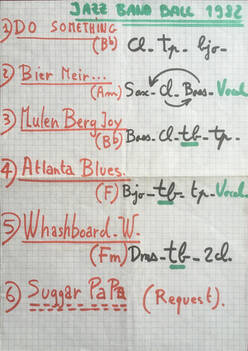 JAZZ BAND BALL 1982
1) DO SOMETHING
(Bb) Cl_ tp_ bjo_
2) Bier Meir...
(Am) Sax_ Cl_ Bass_ Vocal
3) Mulen Berg Joy
(Bb) Bass_ Cl_ tb_ tp_
4) Atlanta Blues_
(F) Bjo_ tb_ tp_ Vocal_
5) Whashboard_W_
(Fm) Dms_ tb_ 2cl_
6) Suggar PaPa (Request).